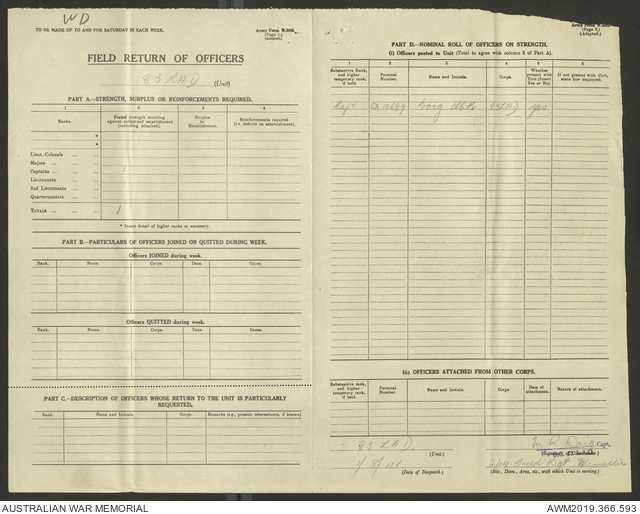 WD
TO BE MADE UP TO AND FOR SATURDAY IN EACH WEEK.
Army Form W.3008.
(Page 1.)
(Adapted.)
FIELD RETURN OF OFFICERS
83 LAD (Unit)
PART A.—STRENGTH, SURPLUS OR REINFORCEMENTS REQUIRED.
1 2 3 4
Ranks. Posted strength counting against authorised establishment (excluding attached). Surplus to Establishment. Reinforcements required (i.e. deficits on establishment).
*
*
Lieut.-Colonels ... ...
Majors ... ...
Captains ... ... 1
Lieutenants ... ...
2nd Lieutenants ...
Quartermasters ...
TOTALS ... ... 1
* Insert detail of higher ranks as necessary.
PART B.—PARTICULARS OF OFFICERS JOINED OR QUITTED DURING WEEK.
Officers JOINED during week.
Rank. Name. Corps. Date. Cause.
Officers QUITTED during week.
Rank. Name. Corps. Date. Cause.
PART C.—DESCRIPTION OF OFFICERS WHOSE RETURN TO THE UNIT IS PARTICULARLY REQUESTED.
Rank. Name and Initials. Corps. Remarks (e.g., present whereabouts, if known)
Army Form W.3008.
(Page 2.)
(Adapted.)
PART D.—NOMINAL ROLL OF OFFICERS ON STRENGTH.
(i) Officers posted to Unit (Total to agree with column 2 of Part A).
1 2 3 4 5 6
Substantive Rank, and higher temporary rank, if held. Personal Number. Name and Initials. Corps. Whether present with Unit (Insert Yes or No). If not present with Unit, state how employed.
Capt yes
(ii) OFFICERS ATTACHED FROM OTHER CORPS.
Substantive rank, and higher temporary rank, if held. Personal Number. Name and Initials. Corps Date of attachment. Nature of attachment.
83 LAD (Unit.)
Capt.
(Date of Despatch.)
2/14 Field Regt Winnellie
(Bde., Divn., Area, etc., with which Unit is serving.)
AUSTRALIAN WAR MEMORIAL
AWM2019.366.593